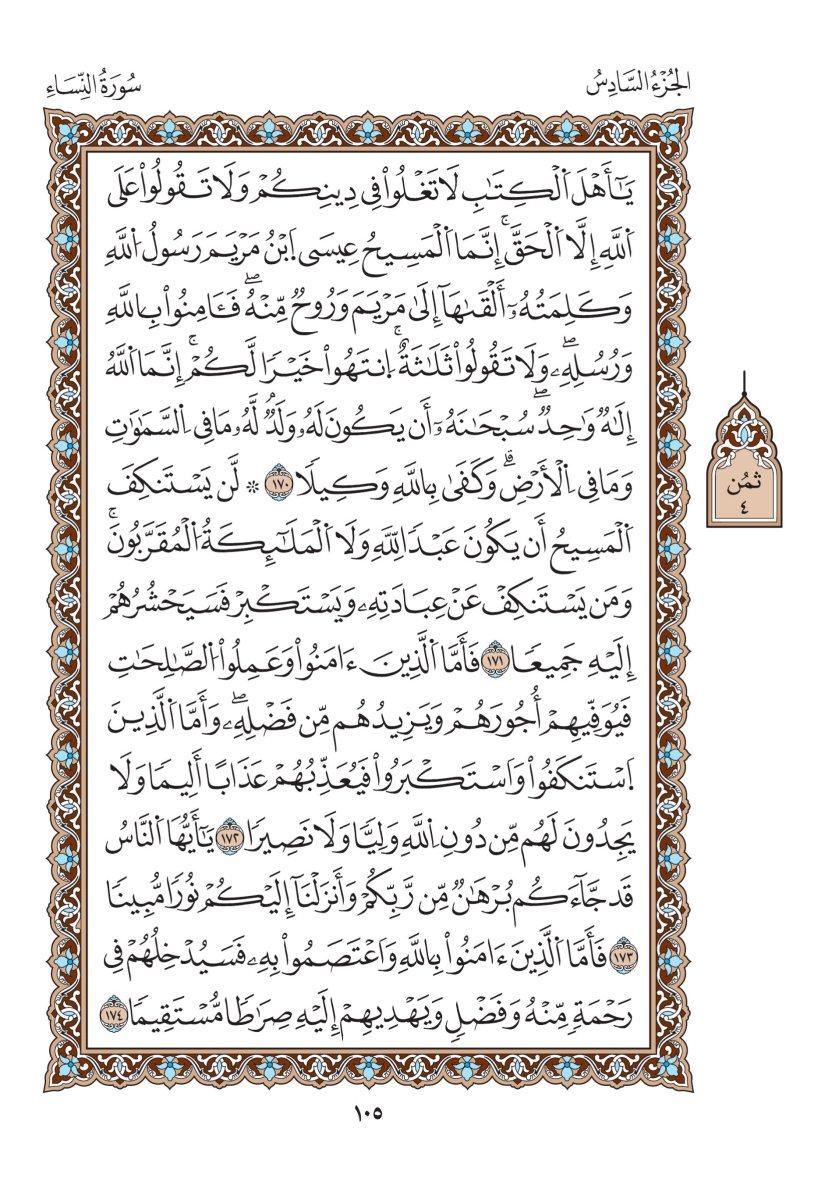 الجُزْءُ السَّادِسُ
سُورَةُ النِّسَاءِ
يَٰٓأَهْلَ اَ۬لْكِتَٰبِ لَا تَغْلُواْ فِي دِينِكُمْ وَلَا تَقُولُواْ عَلَى
اَ۬للَّهِ إِلَّا اَ۬لْحَقَّۚ إِنَّمَا اَ۬لْمَسِيحُ عِيسَى اَ۪بْنُ مَرْيَمَ رَسُولُ اُ۬للَّهِ
وَكَلِمَتُهُۥٓ أَلْقَىٰهَآ إِلَىٰ مَرْيَمَ وَرُوحٞ مِّنْهُۖ فَـَٔامِنُواْ بِاللَّهِ
وَرُسُلِهِۦۖ وَلَا تَقُولُواْ ثَلَٰثَةٌۚ اِ۪نتَهُواْ خَيْرٗا لَّكُمْۚ إِنَّمَا اَ۬للَّهُ
إِلَٰهٞ وَٰحِدٞۖ سُبْحَٰنَهُۥٓ أَن يَكُونَ لَهُۥ وَلَدٞ لَّهُۥ مَا فِي اِ۬لسَّمَٰوَٰتِ
وَمَا فِي اِ۬لْأَرْضِۗ وَكَفَىٰ بِاللَّهِ وَكِيلٗا ١٧٠ ۞ لَّن يَسْتَنكِفَ
اَ۬لْمَسِيحُ أَن يَكُونَ عَبْدٗا لِّلَّهِ وَلَا اَ۬لْمَلَٰٓئِكَةُ اُ۬لْمُقَرَّبُونَۚ
وَمَن يَسْتَنكِفْ عَنْ عِبَادَتِهِۦ وَيَسْتَكْبِرْ فَسَيَحْشُرُهُمْ
إِلَيْهِ جَمِيعٗا ١٧١ فَأَمَّا اَ۬لَّذِينَ ءَامَنُواْ وَعَمِلُواْ اُ۬لصَّٰلِحَٰتِ
فَيُوَفِّيهِمْ أُجُورَهُمْ وَيَزِيدُهُم مِّن فَضْلِهِۦۖ وَأَمَّا اَ۬لَّذِينَ
اَ۪سْتَنكَفُواْ وَاسْتَكْبَرُواْ فَيُعَذِّبُهُمْ عَذَابًا أَلِيمٗا وَلَا
يَجِدُونَ لَهُم مِّن دُونِ اِ۬للَّهِ وَلِيّٗا وَلَا نَصِيرٗا ١٧٢ يَٰٓأَيُّهَا اَ۬لنَّاسُ
قَد جَّآءَكُم بُرْهَٰنٞ مِّن رَّبِّكُمْ وَأَنزَلْنَآ إِلَيْكُمْ نُورٗا مُّبِينٗا
١٧٣ فَأَمَّا اَ۬لَّذِينَ ءَامَنُواْ بِاللَّهِ وَاعْتَصَمُواْ بِهِۦ فَسَيُدْخِلُهُمْ فِي
رَحْمَةٖ مِّنْهُ وَفَضْلٖ وَيَهْدِيهِمْ إِلَيْهِ صِرَٰطٗا مُّسْتَقِيمٗا ١٧٤
ثُمُن
٤
١٠٥